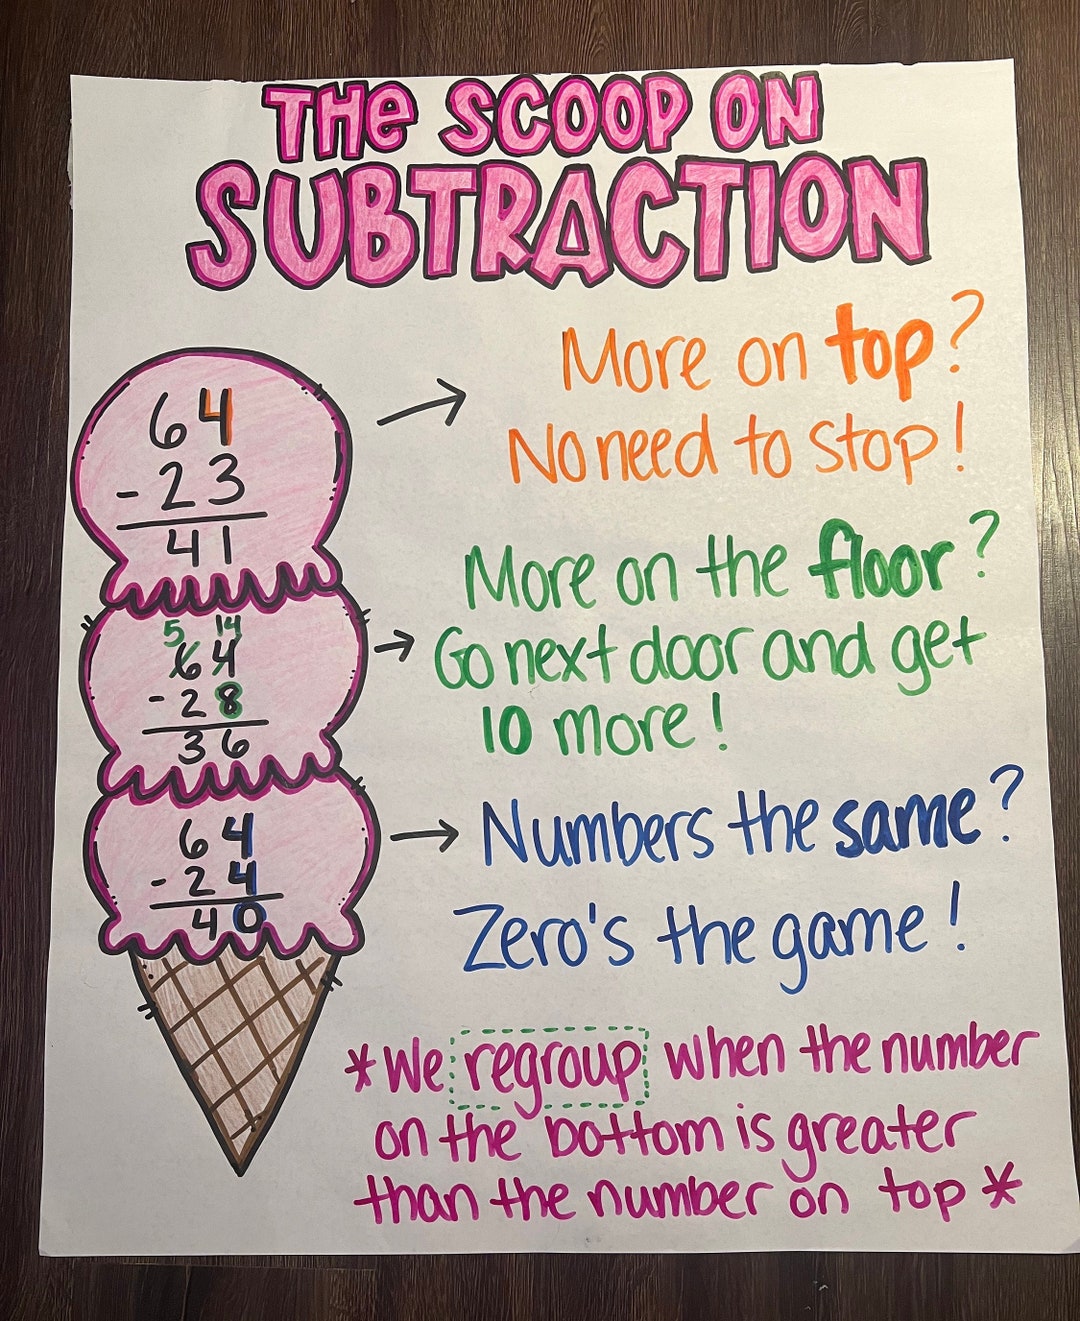 THE SCOOP ON
SUBTRACTION
64
- 23
41
More on top?
No need to stop!
5 14
64
- 28
36
More on the floor?
Go next door and get
10 more!
64
- 24
40
Numbers the same?
Zero's the game!
*We regroup when the number
on the bottom is greater
than the number on top*